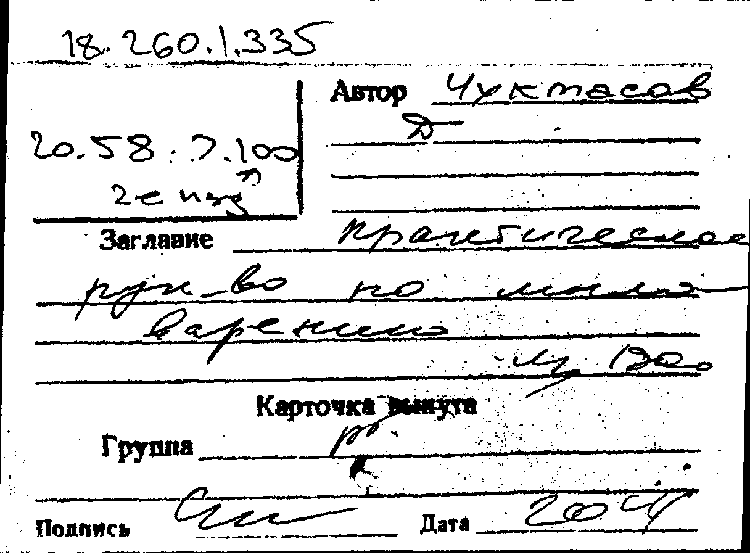 18.260.1.335
Автор Чуктасов
Д
20.58.7.100
2е изд
Заглавие Практическое
рук-во по мыло-
варению
Карточка вынута
Группа
Подпись
Дата